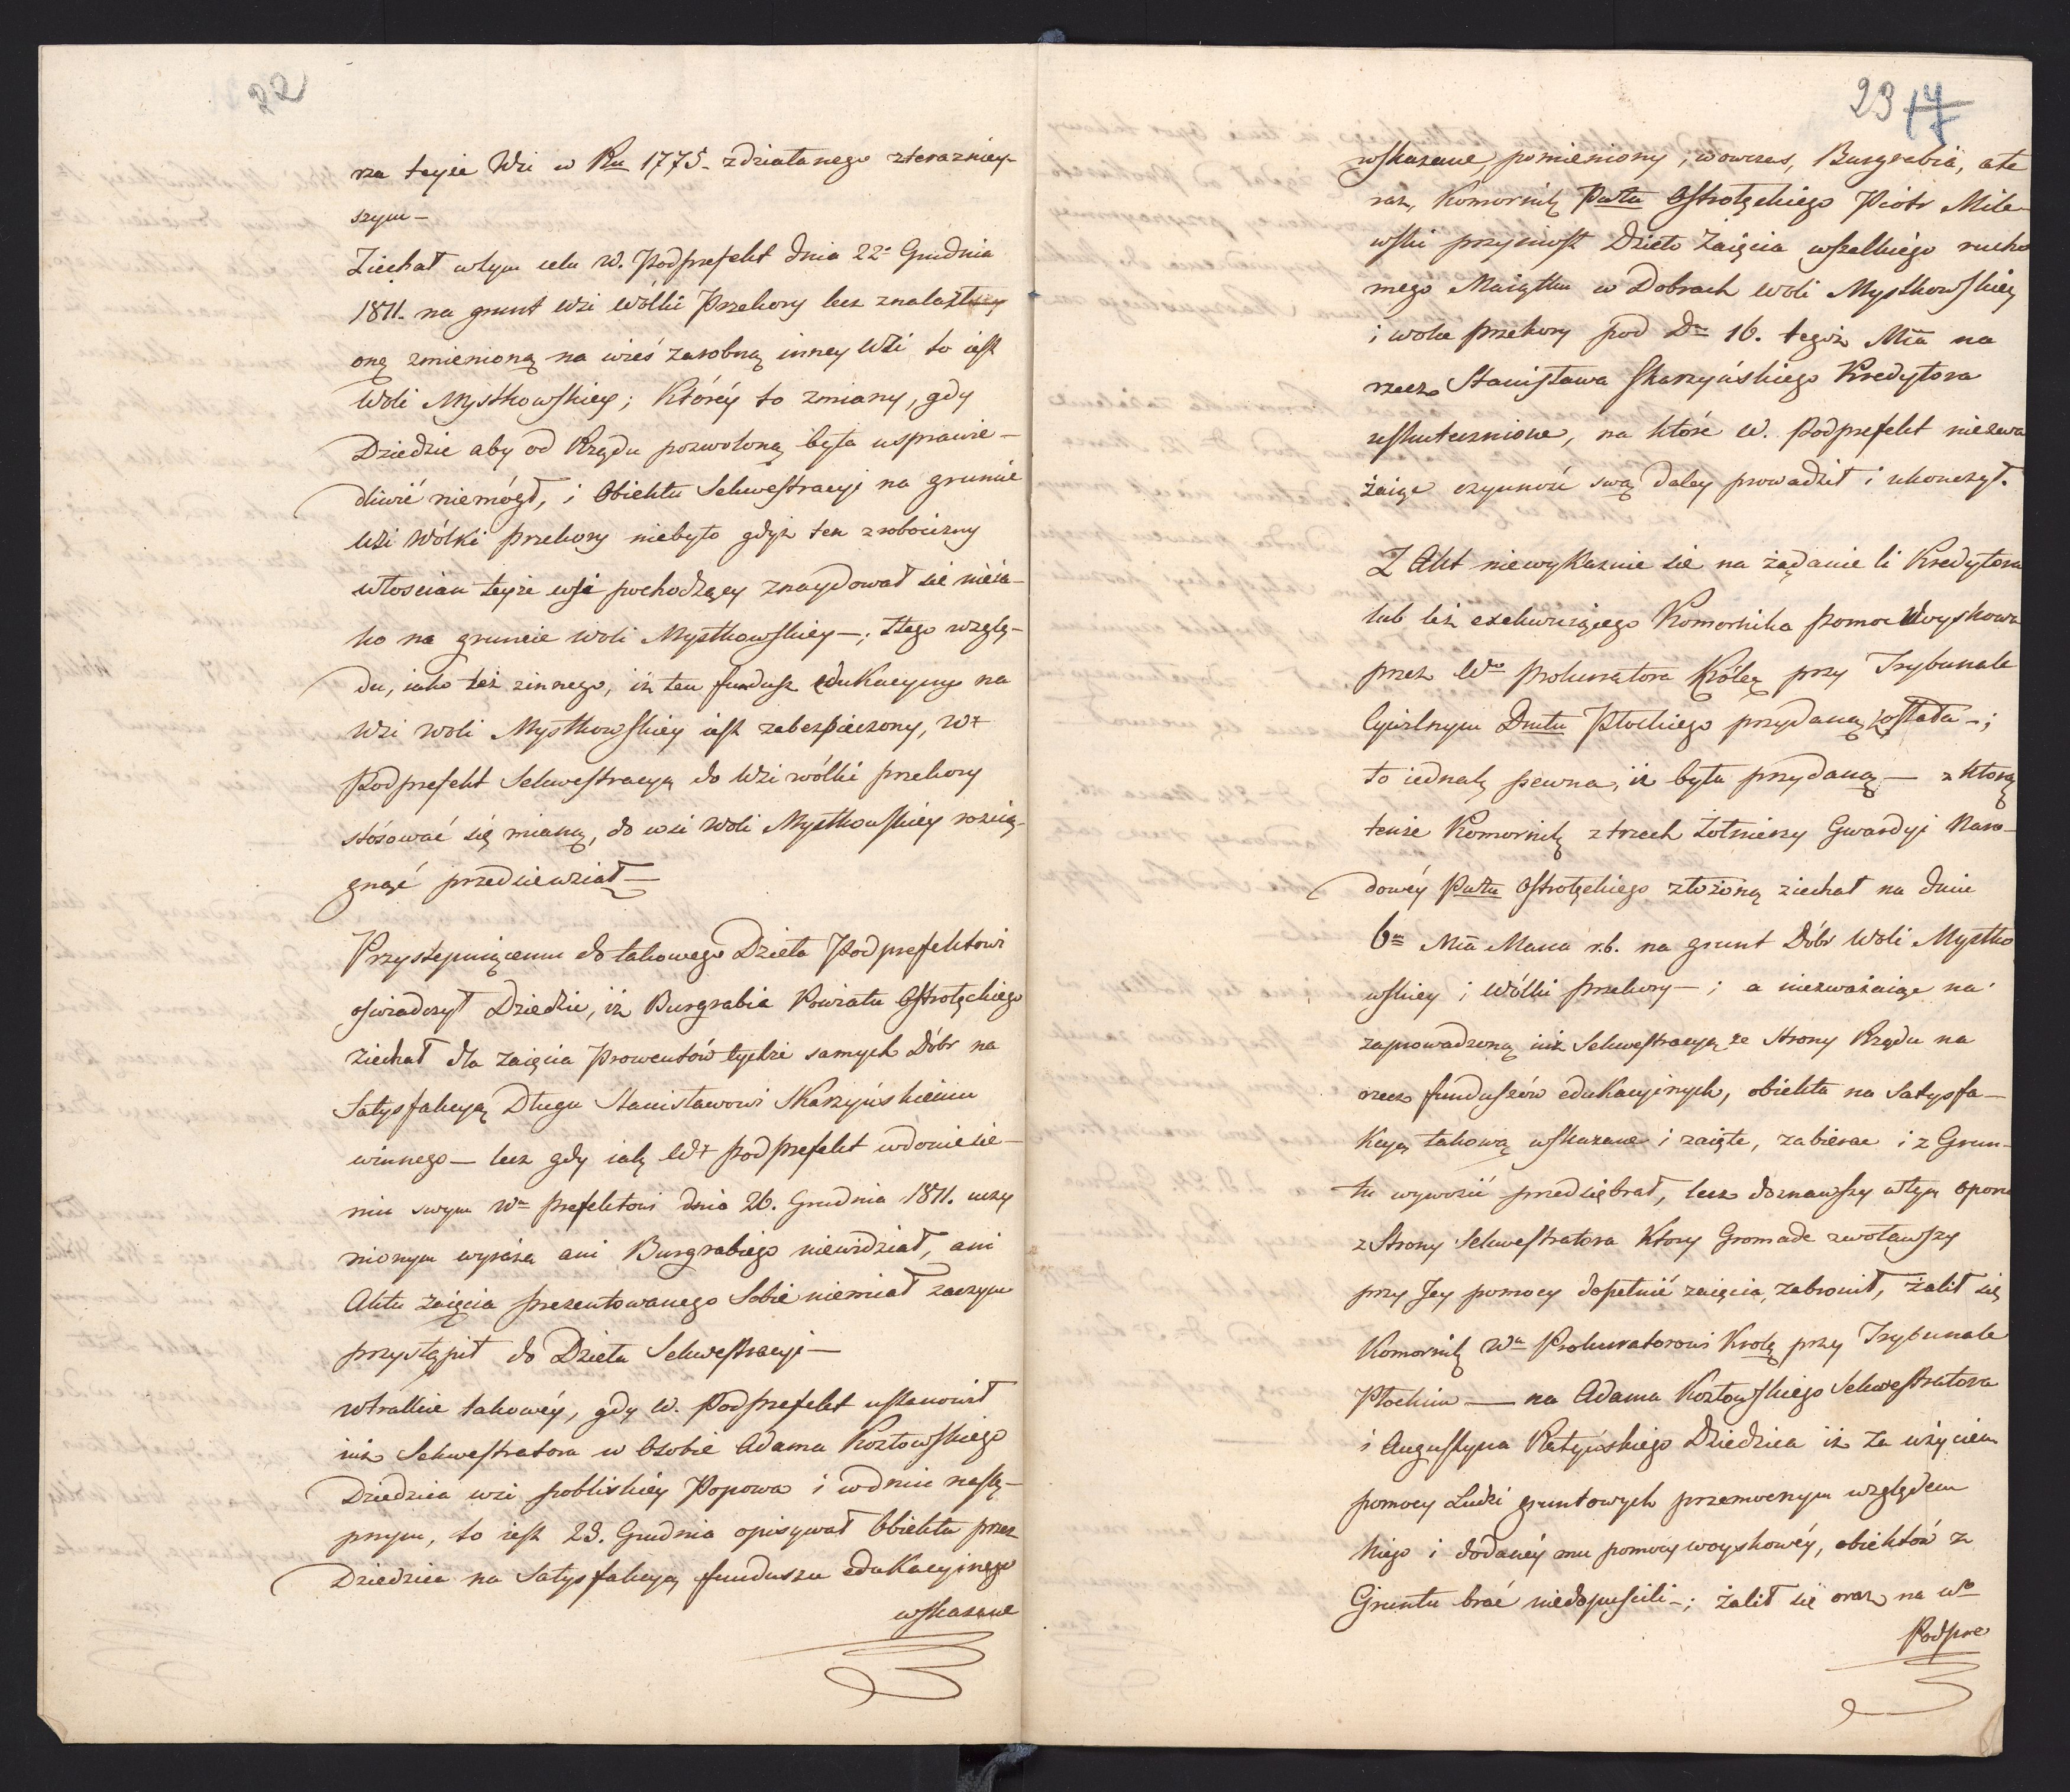 22
rza teyże Wsi w Ru 1775. zdziałanego zterazniey-
szym —
Ziechał wtym celu W. Podprefekt dnia 22º Grudnia
1811. na grunt wsi Wólki Przekory lecz znalazłszy
onę zmienioną na wieś zarobną inney Wsi to iest
Woli Mystkowskiey; Którey to zmiany, gdy
Dziedzic aby od Rządu pozwoloną była usprawie-
dliwić niemógł, i Obiektu Sekwestracyi na gruncie
Wsi Wólki Przekory niebyło gdyż ten z robocizny
włościan teyże wsi pochodzący znaydował się nieia-
ko na gruncie Woli Mystkowskiey —; Ztego wzglę-
du, iako też zinnego, iż ten fundusz edukacyiny na
Wsi Woli Mystkowskiey iest zabezpieczony, Wr
Podprefekt Sekwestracyą do Wsi wólki przekory
stósować się mianą, do wsi Woli Mystkowskiey rością-
gnąć przedsiewziął —
Przystępuiącemu do takowego Dzieła Podprefektowi
oświadczył Dziedzic, iż Burgrabia Powiatu Ostrołęckiego
ziechał dla zaięcia Prowentów tychże samych Dóbr na
Satysfakcyą Długu Stanisławowi Skarzyńskiemu
winnego — lecz gdy iak Wr Podprefekt w doniesie-
niu swym Wu Prefektowi dnia 26. Grudnia 1811. uczy
nionym wyraża ani Burgrabiego niewidział, ani
Aktu Zaięcia prezentowanego Sobie niemiał zaczym
przystąpił do Dzieła Sekwestracyi —
wtrakcie takowéy, gdy W. Podprefekt ustanowił
iuż Sekwestratora w Osobie Adama Kozłowskiego
Dziedzica wsi pobliskiéy Popowa i w dniu nastę-
pnym, to iest 23. Grudnia opisywał Obiekta przez
Dziedzica na Satysfakcyą funduszu edukacyinego
wskazane
23 17
wskazane, pomieniony, i wowczas, Burgrabia, a te
raz, Komornik Pwtu Ostrołęckiego Piotr Mile-
wski przyniosł Dzieło Zaięcia wszelkiego rucho
mego Maiątku w Dobrach Woli Mystkowskiey
i wolce przekory pod Dm 16. tegoż Mca na
rzecz Stanisława Skarzyńskiego Kredytora
uskutecznione, na które W. Podprefekt niezwa
żaiąc czynność swą daley prowadził i ukonczył.
Z Akt niewykazuie się na żądanie li Kredytora
lub też exekwuiącego Komornika pomoc Woyskowa
przez Wo Prokuratora Królęą przy Trybunale
Cywilnym Dmtu Płockiego przydaną została —;
to iednak pewna, iż była przydaną — z którą
tenże Komornik z trzech Żołnierzy Gwardyi Naro-
dowéy Pwtu Ostrołęckiego złożoną ziechał na dniu
6m Mca Marca r.b. na grunt Dóbr Woli Mystko
wskiey i Wólki Przekory —; a niezważaiąc na
zaprowadzoną iuż Sekwestracyą ze Strony Rządu na
rzecz funduszów edukacyinych, obiekta na Satysfa-
kcyą takową wskazane i zaięte, zabierac i z Grun-
tu wywozić przedsiębrał, lecz doznawszy wtym oporu
z Strony Sekwestratora Który Gromade zwoławszy
przy Jey pomocy dopełnić zaięcia, zabronił, żalił się
Komornik Wu Prokuratorowi Krolą przy Trybunale
Płockim — na Adama Kozłowskiego Sekwestratora
i Augustyna Ratyńskiego Dziedzica iż za użyciem
pomocy Ludzi gruntowych przemocnym względem
niego i dodanéy mu pomocy woyskowéy, obiektów z
Gruntu brać niedopuscili —; żalił się oraz na Wo
Podpre